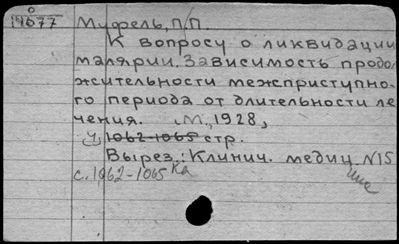 0
14677 Муфель, П.П.
К вопросу о ликвидации
малярии. Зависимость продол
жительности межприступно-
го периода от длительности ле
чения. М., 1928,
1062-1065 стр.
Вырез.: Клинич. медиц. N15
с. 1062-1065 ка